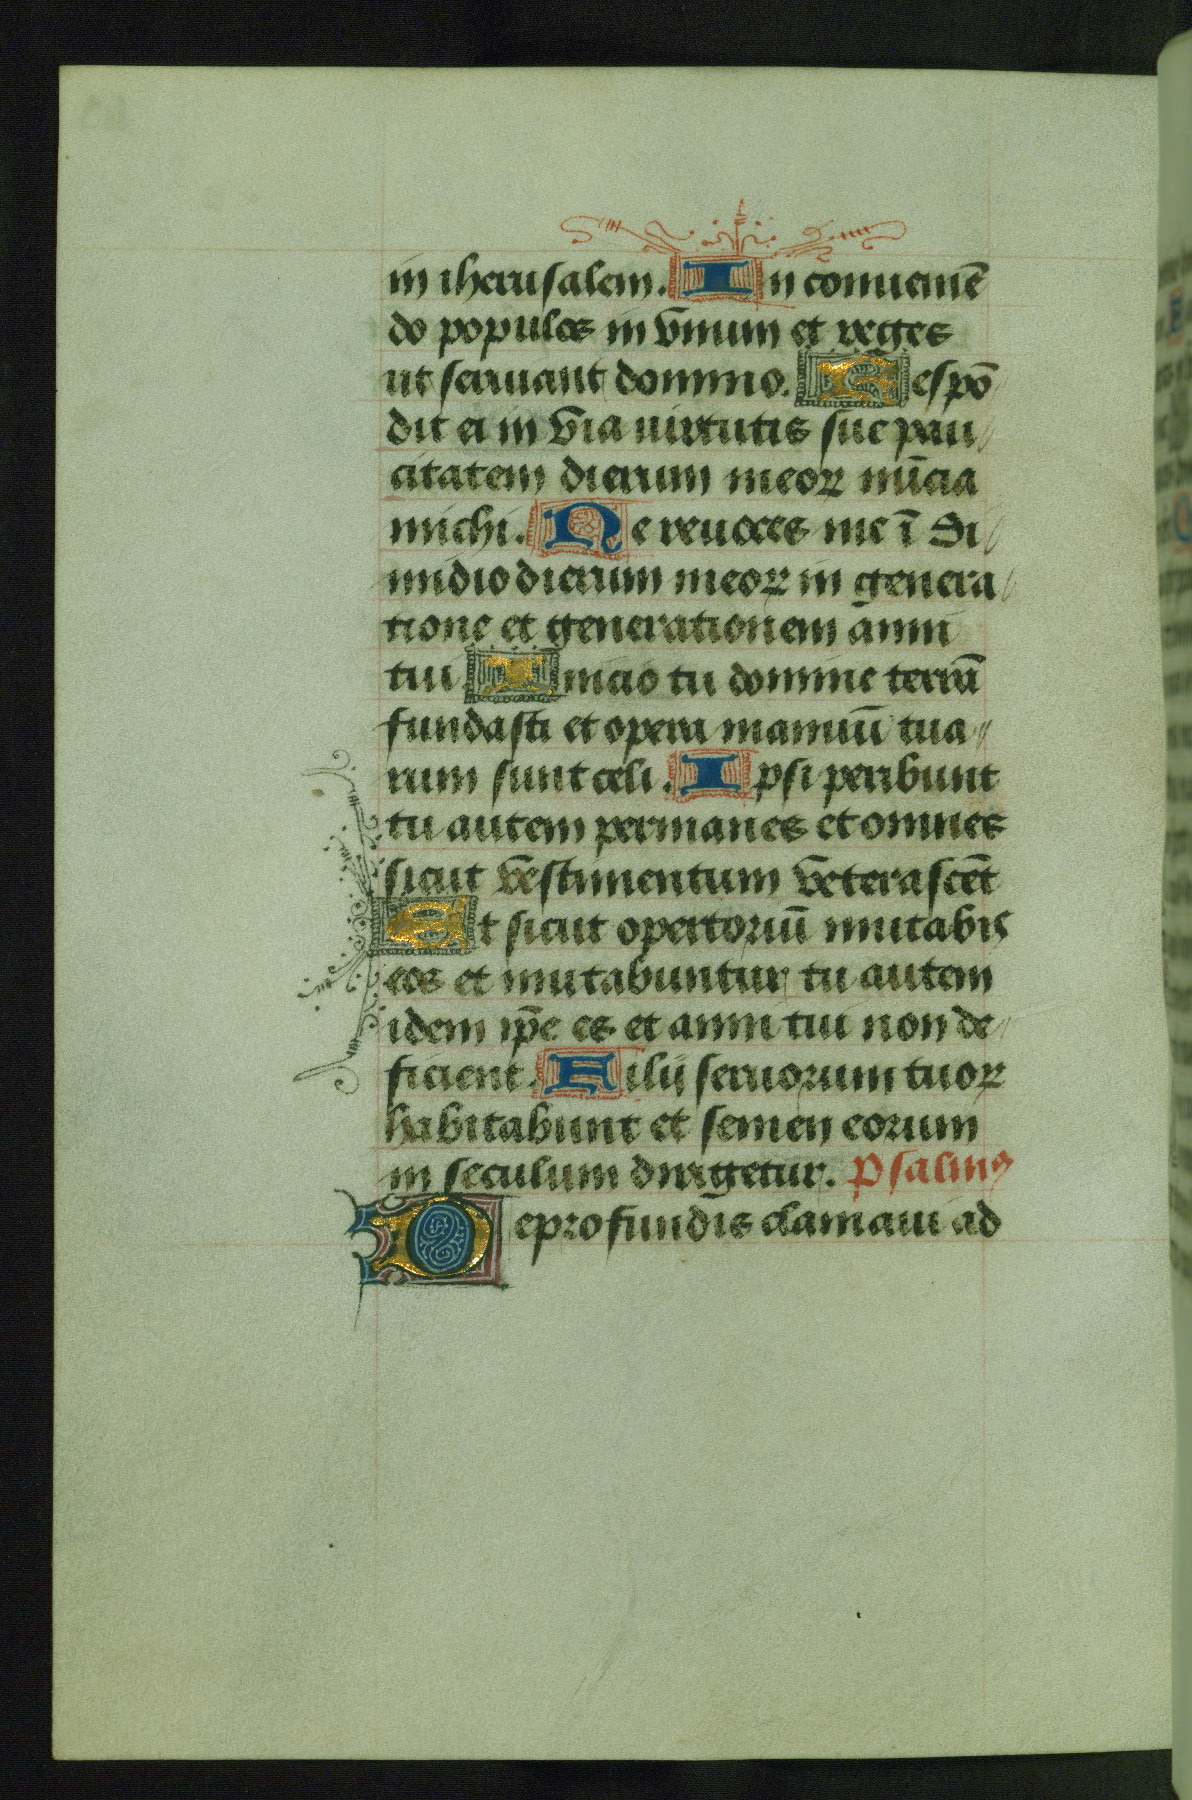 in iherusalem. In conueniē
do populos in vnum et reges
ut seruiant domino. Respō
dit ei in via uirtutis sue pau
citatem dierum meoꝝ nūcia
michi. Ne reuoces me ī di
midio dierum meoꝝ in genera
tione et generationem anni
tui Inicio tu domine terrā
fundasti et opera manuū tua
rum sunt celi. Ipsi peribunt
tu autem permanes et omnes
sicut vestimentum veterascēt
Et sicut opertoriū mutabis
eos et mutabuntur tu autem
idem ip̄e es et anni tui non de
ficient. Filii seruorum tuoꝝ
habitabunt et semen eorum
in seculum dirigetur. Psalmꝰ
De profundis clamaui ad